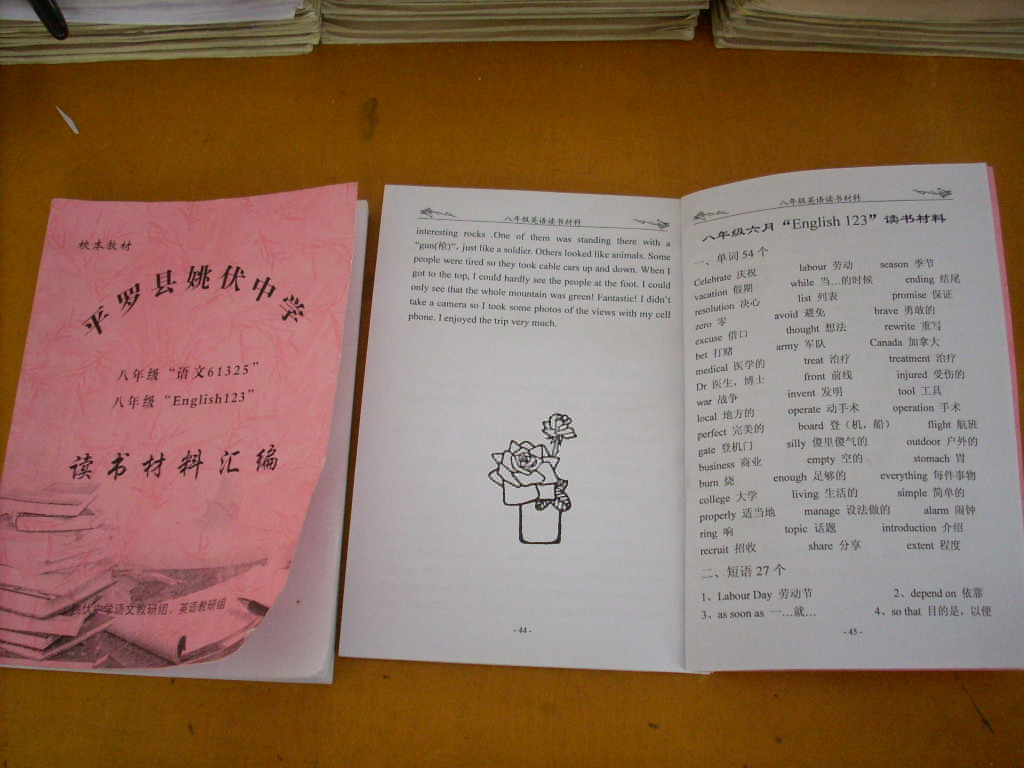 校本教材
平罗县姚伏中学
八年级“语文61325”
八年级“English123”
读书材料汇编
姚伏中学语文教研组、英语教研组
八年级英语读书材料
interesting rocks .One of them was standing there with a
“gun(枪)”, just like a soldier. Others looked like animals. Some
people were tired so they took cable cars up and down. When I
got to the top, I could hardly see the people at the foot. I could
only see that the whole mountain was green! Fantastic! I didn’t
take a camera so I took some photos of the views with my cell
phone. I enjoyed the trip very much.
- 44 -
八年级英语读书材料
八年级六月“English 123”读书材料
一、单词 54 个
Celebrate 庆祝 labour 劳动 season 季节
vacation 假期 while 当…的时候 ending 结尾
resolution 决心 list 列表 promise 保证
zero 零 avoid 避免 brave 勇敢的
excuse 借口 thought 想法 rewrite 重写
bet 打赌 army 军队 Canada 加拿大
medical 医学的 treat 治疗 treatment 治疗
Dr 医生，博士 front 前线 injured 受伤的
war 战争 invent 发明 tool 工具
local 地方的 operate 动手术 operation 手术
perfect 完美的 board 登（机，船） flight 航班
gate 登机门 silly 傻里傻气的 outdoor 户外的
business 商业 empty 空的 stomach 胃
burn 烧 enough 足够的 everything 每件事物
college 大学 living 生活的 simple 简单的
properly 适当地 manage 设法做的 alarm 闹钟
ring 响 topic 话题 introduction 介绍
recruit 招收 share 分享 extent 程度
二、短语 27 个
1、Labour Day 劳动节 2、depend on 依靠
3、as soon as 一…就… 4、so that 目的是，以便
- 45 -